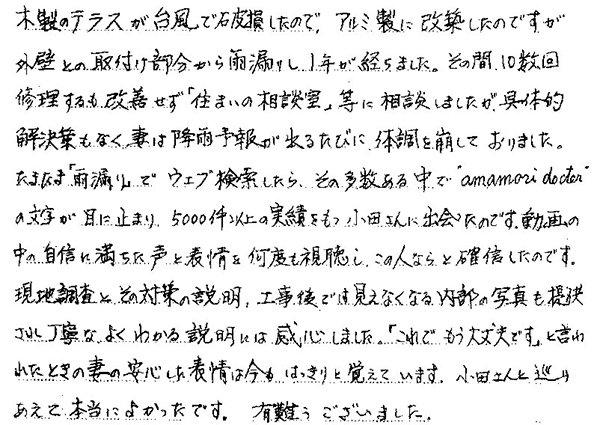 木製のテラスが台風で破損したので、アルミ製に改築したのですが
外壁との取付け部分から雨漏りし、1年が経ちました。その間、10数回
修理するも改善せず「住まいの相談室」等に相談しましたが、具体的
解決策もなく、妻は降雨予報が出るたびに、体調を崩しておりました。
たまたま「雨漏り」でウェブ検索したら、その多数ある中で"amamori doctor"
の文字が目に止まり、5000件以上の実績をもつ小田さんに出会ったのです。動画の
中の自信に満ちた声と表情を何度も視聴し、この人ならと確信したのです。
現地調査とその対策の説明、工事後では見えなくなる内部の写真も提供
され丁寧な、よくわかる説明には感心しました。「これでもう大丈夫です」と言わ
れたときの妻の安心した表情は今もはっきりと覚えています。小田さんと巡り
あえて本当によかったです。 有難うございました。